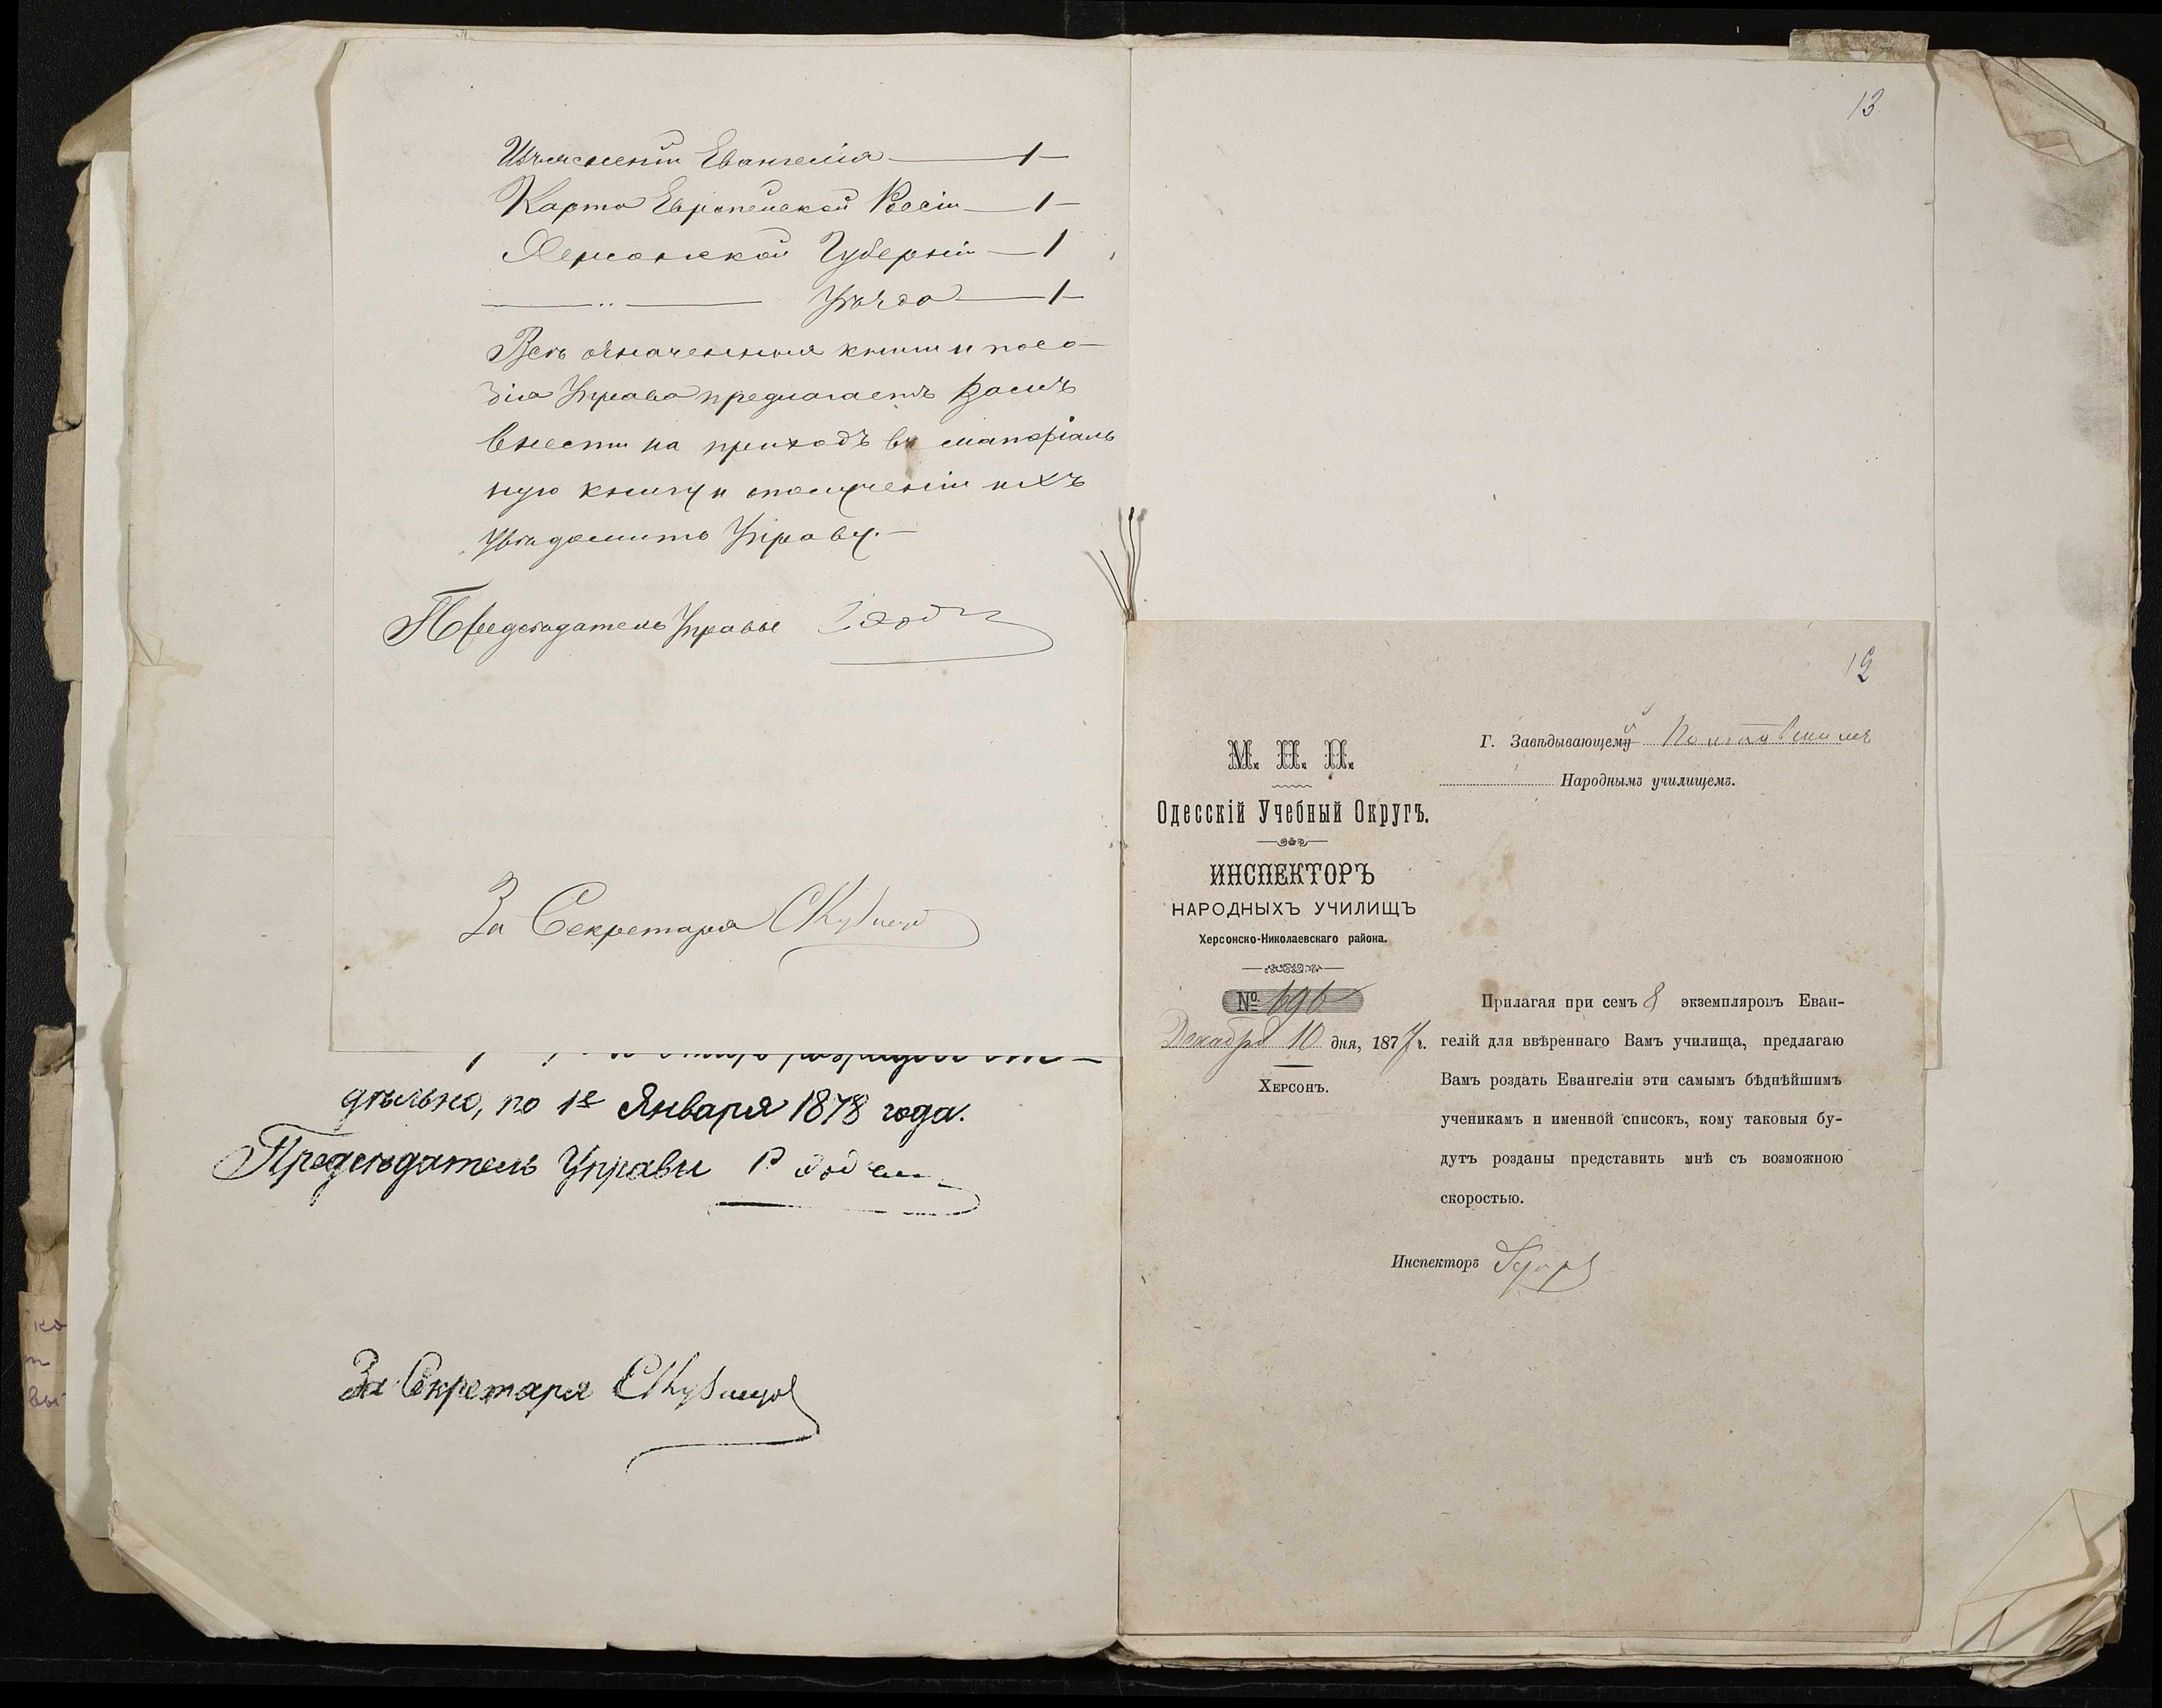 Изъясненіи Евангелія — 1 —
Карта Европейской Россіи — 1 —
Херсонской Губерніи — 1
— „ — Уѣзда — 1 —
Всѣ означенныя книги и посо-
бія Управа предлагаетъ Вамъ
внести на приходъ въ матеріаль
ную книгу и ополученіи ихъ
увѣдомить Управу. —
Предсѣдатель Управы
За Секретаря
дѣльно, по 1е Января 1878 года.
Предсѣдатель Управы
За Секретаря
13
12
М. Н. П.
Одесскій Учебный Округъ.
ИНСПЕКТОРЪ
НАРОДНЫХЪ УЧИЛИЩЪ
Херсонско-Николаевскаго района.
№ 696
Декабря 10 дня, 1877 г.
Херсонъ.
Г. Завѣдывающему Полтавскимъ
Народнымъ училищемъ.
Прилагая при семъ 8 экземпляровъ Еван-
гелій для ввѣреннаго Вамъ училища, предлагаю
Вамъ роздать Евангеліи эти самымъ бѣднѣйшимъ
ученикамъ и именной списокъ, кому таковыя бу-
дутъ розданы представить мнѣ съ возможною
скоростью.
Инспекторъ
ко
вы